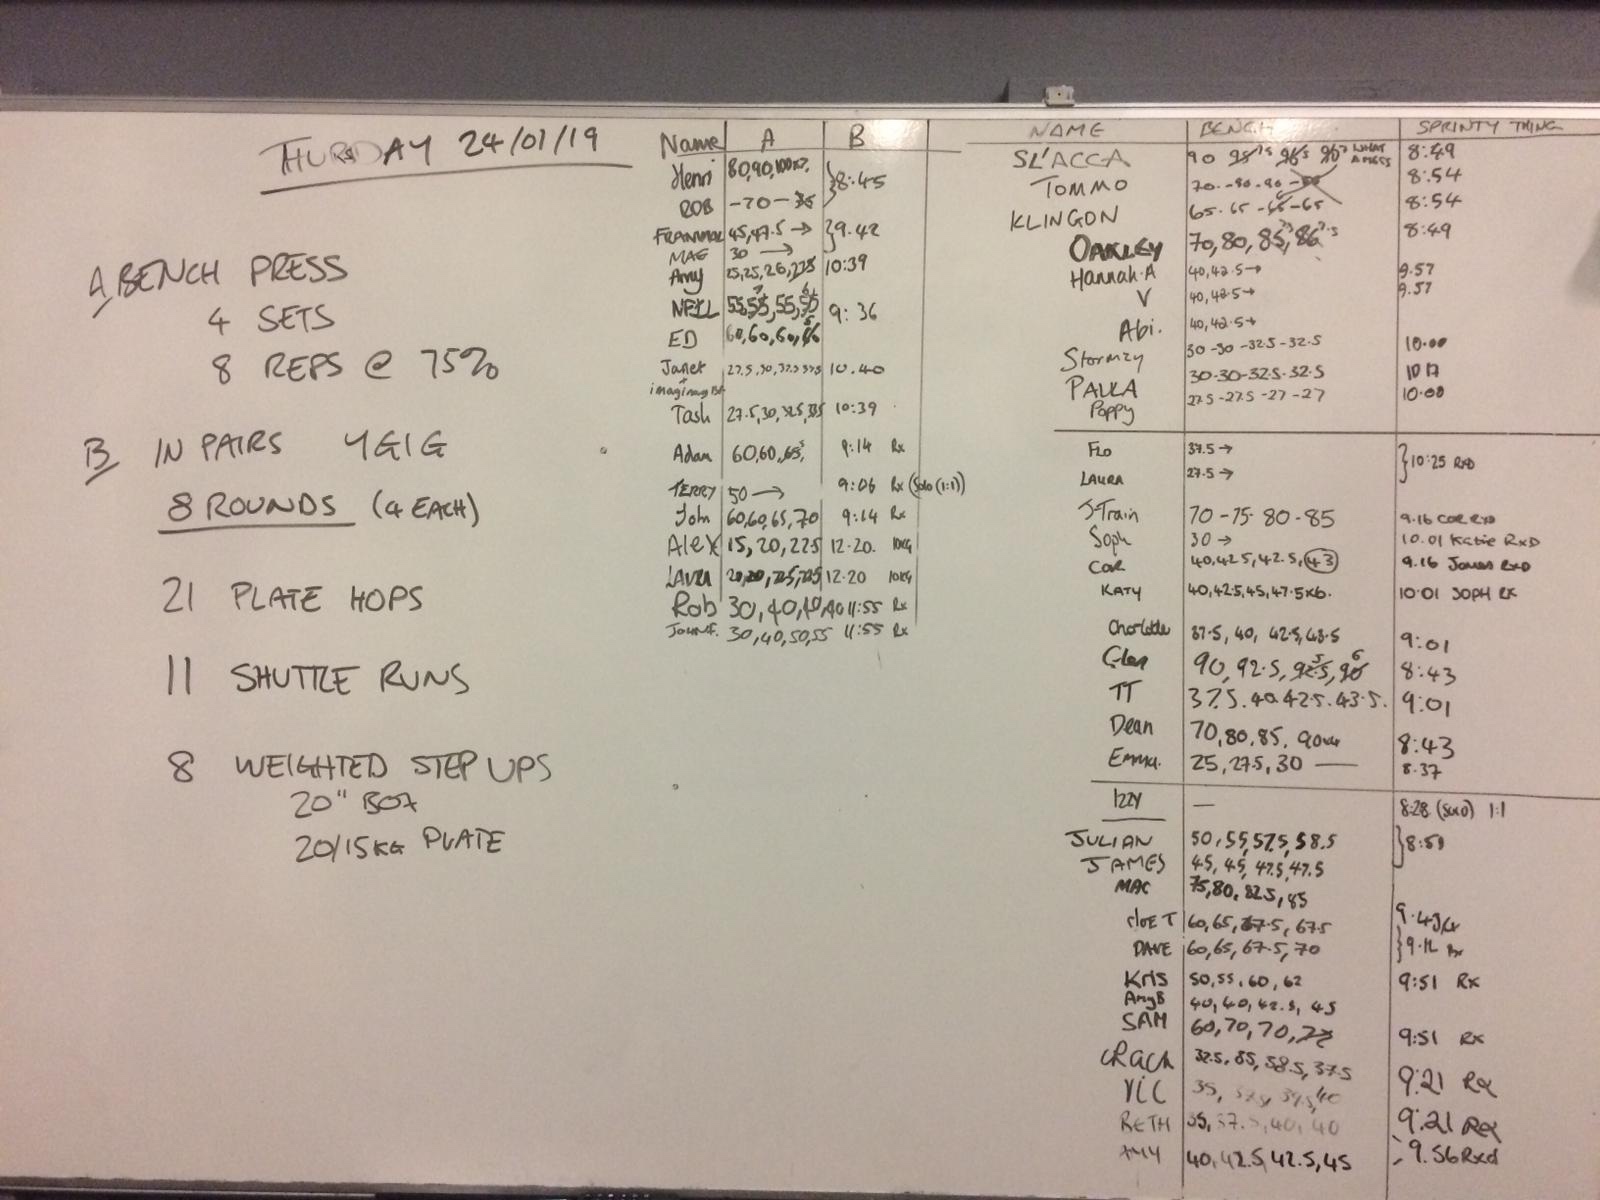 THURSDAY 24/01/19
A BENCH PRESS
4 SETS
8 REPS @ 75%
B IN PAIRS YGIG
8 ROUNDS (4 EACH)
21 PLATE HOPS
11 SHUTTLE RUNS
8 WEIGHTED STEP UPS
20" BOX
20/15KG PLATE
Name A B
Henri 80,90, 8:45
ROB -70-
45,47.5 → 9.42
MAG 30 →
Amy 25,25,26, 10:39
NEIL 55,55,55,50 9:36
ED 60,60,60,
Janet 27.5,30,32.5 10.40
Tash 27.5,30,32.5 10:39
Adam 60,60,65, 9:14 Rx
TERRY 50 → 9:06 Rx (Solo (1:1))
John 60,60,65,70 9:14 Rx
Alex 15,20,22.5 12.20. 10KG
LAURA 20,20,22.5,22.5 12.20 10KG
Rob 30,40,40,40 11:55 Rx
30,40,50,55 11:55 Rx
NAME BENCH SPRINTY THING
SL'ACCA 90 WHAT A MESS 8:49
TOMMO 70--80-90- 8:54
KLINGON 65.65-65-65 8:54
OAKLEY 70,80,85,86 8:49
Hannah.A 40,42.5→ 9.57
V 40,42.5→ 9.57
Abi. 40,42.5→
Stormzy 30-30-32.5-32.5 10.00
PAULA 30-30-32.5-32.5 10 17
Poppy 27.5-27.5-27-27 10.00
Flo 37.5→ 10:25 RXD
LAURA 27.5→
J-Train 70-75-80-85 9.16 COR RXD
Soph 30→ 10.01 Katie RxD
COR 40,42.5,42.5,43 9.16 Jones RXD
KATY 40,42.5,45,47.5KG. 10.01 SOPH RX
Charlotte 37.5, 40, 42.5,43.5 9:01
Glen 90,92.5,92.5 5,90 6 8:43
TT 37.5.40.42.5.43.5. 9:01
Dean 70,80,85, 90x4 8:43
Emma. 25,27.5,30 — 8.37
IZZY — 8:28 (solo) 1:1
JULIAN 50,55,57.5,58.5 8:59
JAMES 45,45,47.5,47.5
MAC 75,80,82.5,85
60,65,67.5,67.5 9.43
DAVE 60,65,67.5,70 9.12 Rx
Kris 50,55,60,62 9:51 Rx
Amy B 40,40,42.5,45
SAM 60,70,70, 9:51 Rx
32.5,35, 37.5 9:21 RX
VIC 35, 37.5, 40
BETH 35,37.5,40,40 9.21 RX
AMY 40,42.5,42.5,45 9.56 Rxd